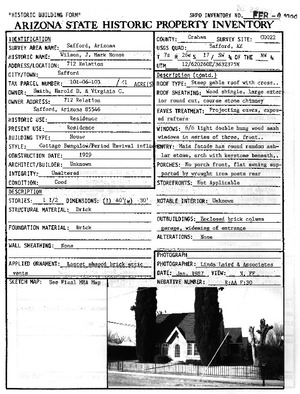 "HISTORIC BUILDING FORM"
SHPO INVENTORY NO.
ARIZONA STATE HISTORIC PROPERTY INVENTORY
IDENTIFICATION
SURVEY AREA NAME: Safford, Arizona
HISTORIC NAME: Wilson, J. Mark House
ADDRESS/LOCATION: 712 Relation
CITY/TOWN: Safford
TAX PARCEL NUMBER: 101-06-103
OWNER: Smith, Harold D. & Virginia C.
OWNER ADDRESS: 712 Relation
Safford, Arizona 85546
HISTORIC USE: Residence
PRESENT USE: Residence
BUILDING TYPE: House
STYLE: Cottage Bungalow/Period Revival influ
CONSTRUCTION DATE: 1929
ARCHITECT/BUILDER: Unknown
INTEGRITY: Unaltered
CONDITION: Good
DESCRIPTION
STORIES: 1 1/2 DIMENSIONS: (l) 40' (w) 30'
STRUCTURAL MATERIAL: Brick
FOUNDATION MATERIAL: Brick
WALL SHEATHING: None
APPLIED ORNAMENT: Lancet shaped brick attic
vents
SKETCH MAP: See Final HRA Map
COUNTY: Graham SURVEY SITE:
USGS QUAD: Safford, AZ
T 7S R 26E S 17 / SW ¼ OF THE NW ¼
UTM
DESCRIPTION (cont'd.)
ROOF TYPE: Steep gable roof with cross
ROOF SHEATHING: Wood shingle, large exter
ior round cut, course stone chimney
EAVES TREATMENT: Projecting eaves, expos
ed rafters
WINDOWS: 6/6 light double hung wood sash
windows in series of three, front
ENTRY: Main facade has round random ash
lar stone, arch with keystone beneath
PORCHES: No porch front, flat awning sup
ported by wrought iron posts rear
STOREFRONTS: Not Applicable
NOTABLE INTERIOR: Unknown
OUTBUILDINGS: Enclosed brick column
garage, widening of entrance
ALTERATIONS: None
PHOTOGRAPH
PHOTOGRAPHER: Linda Laird & Associates
DATE: Jan. 1987 VIEW:
NEGATIVE NUMBER: R:AA F:30